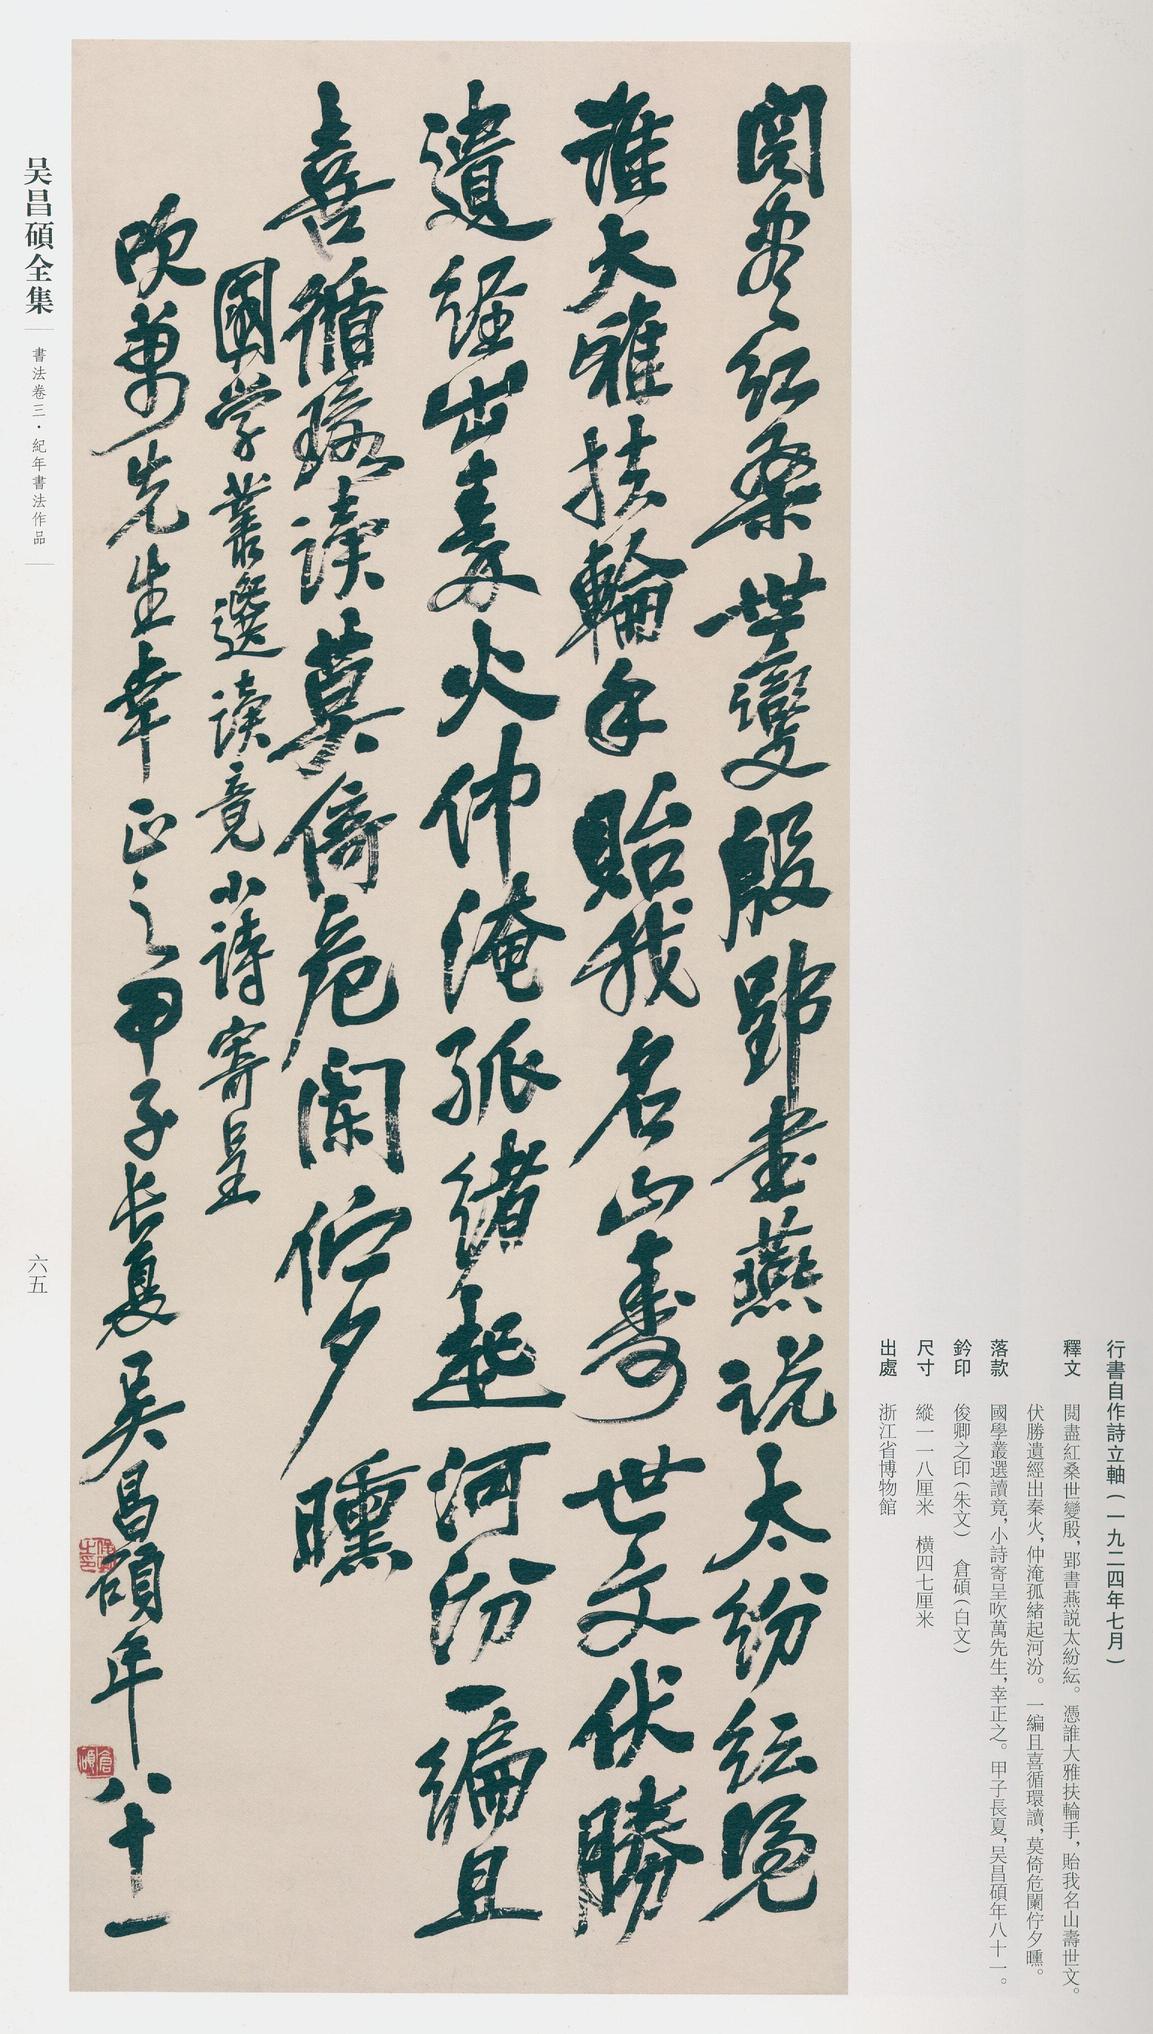 閱盡紅桑世變殷郢書燕說太紛紜憑
誰大雅扶輪手貽我名山壽世文伏勝
遺經出秦火仲淹孤緒起河汾一編且
喜循環讀莫倚危闌佇夕曛
國學叢選讀竟小詩寄呈
吹萬先生幸正之甲子長夏吳昌碩年八十一
俊卿之印
倉碩
行書自作詩立軸(一九二四年七月)
釋文 閱盡紅桑世變殷,郢書燕説太紛紜。憑誰大雅扶輪手,貽我名山壽世文。
伏勝遺經出秦火,仲淹孤緒起河汾。一編且喜循環讀,莫倚危闌佇夕曛。
落款 國學叢選讀竟,小詩寄呈吹萬先生,幸正之。甲子長夏,吴昌碩年八十一。
鈐印 俊卿之印(朱文) 倉碩(白文)
尺寸 縱一一八厘米 横四七厘米
出處 浙江省博物館
吴昌碩全集
書法卷三·紀年書法作品
六五